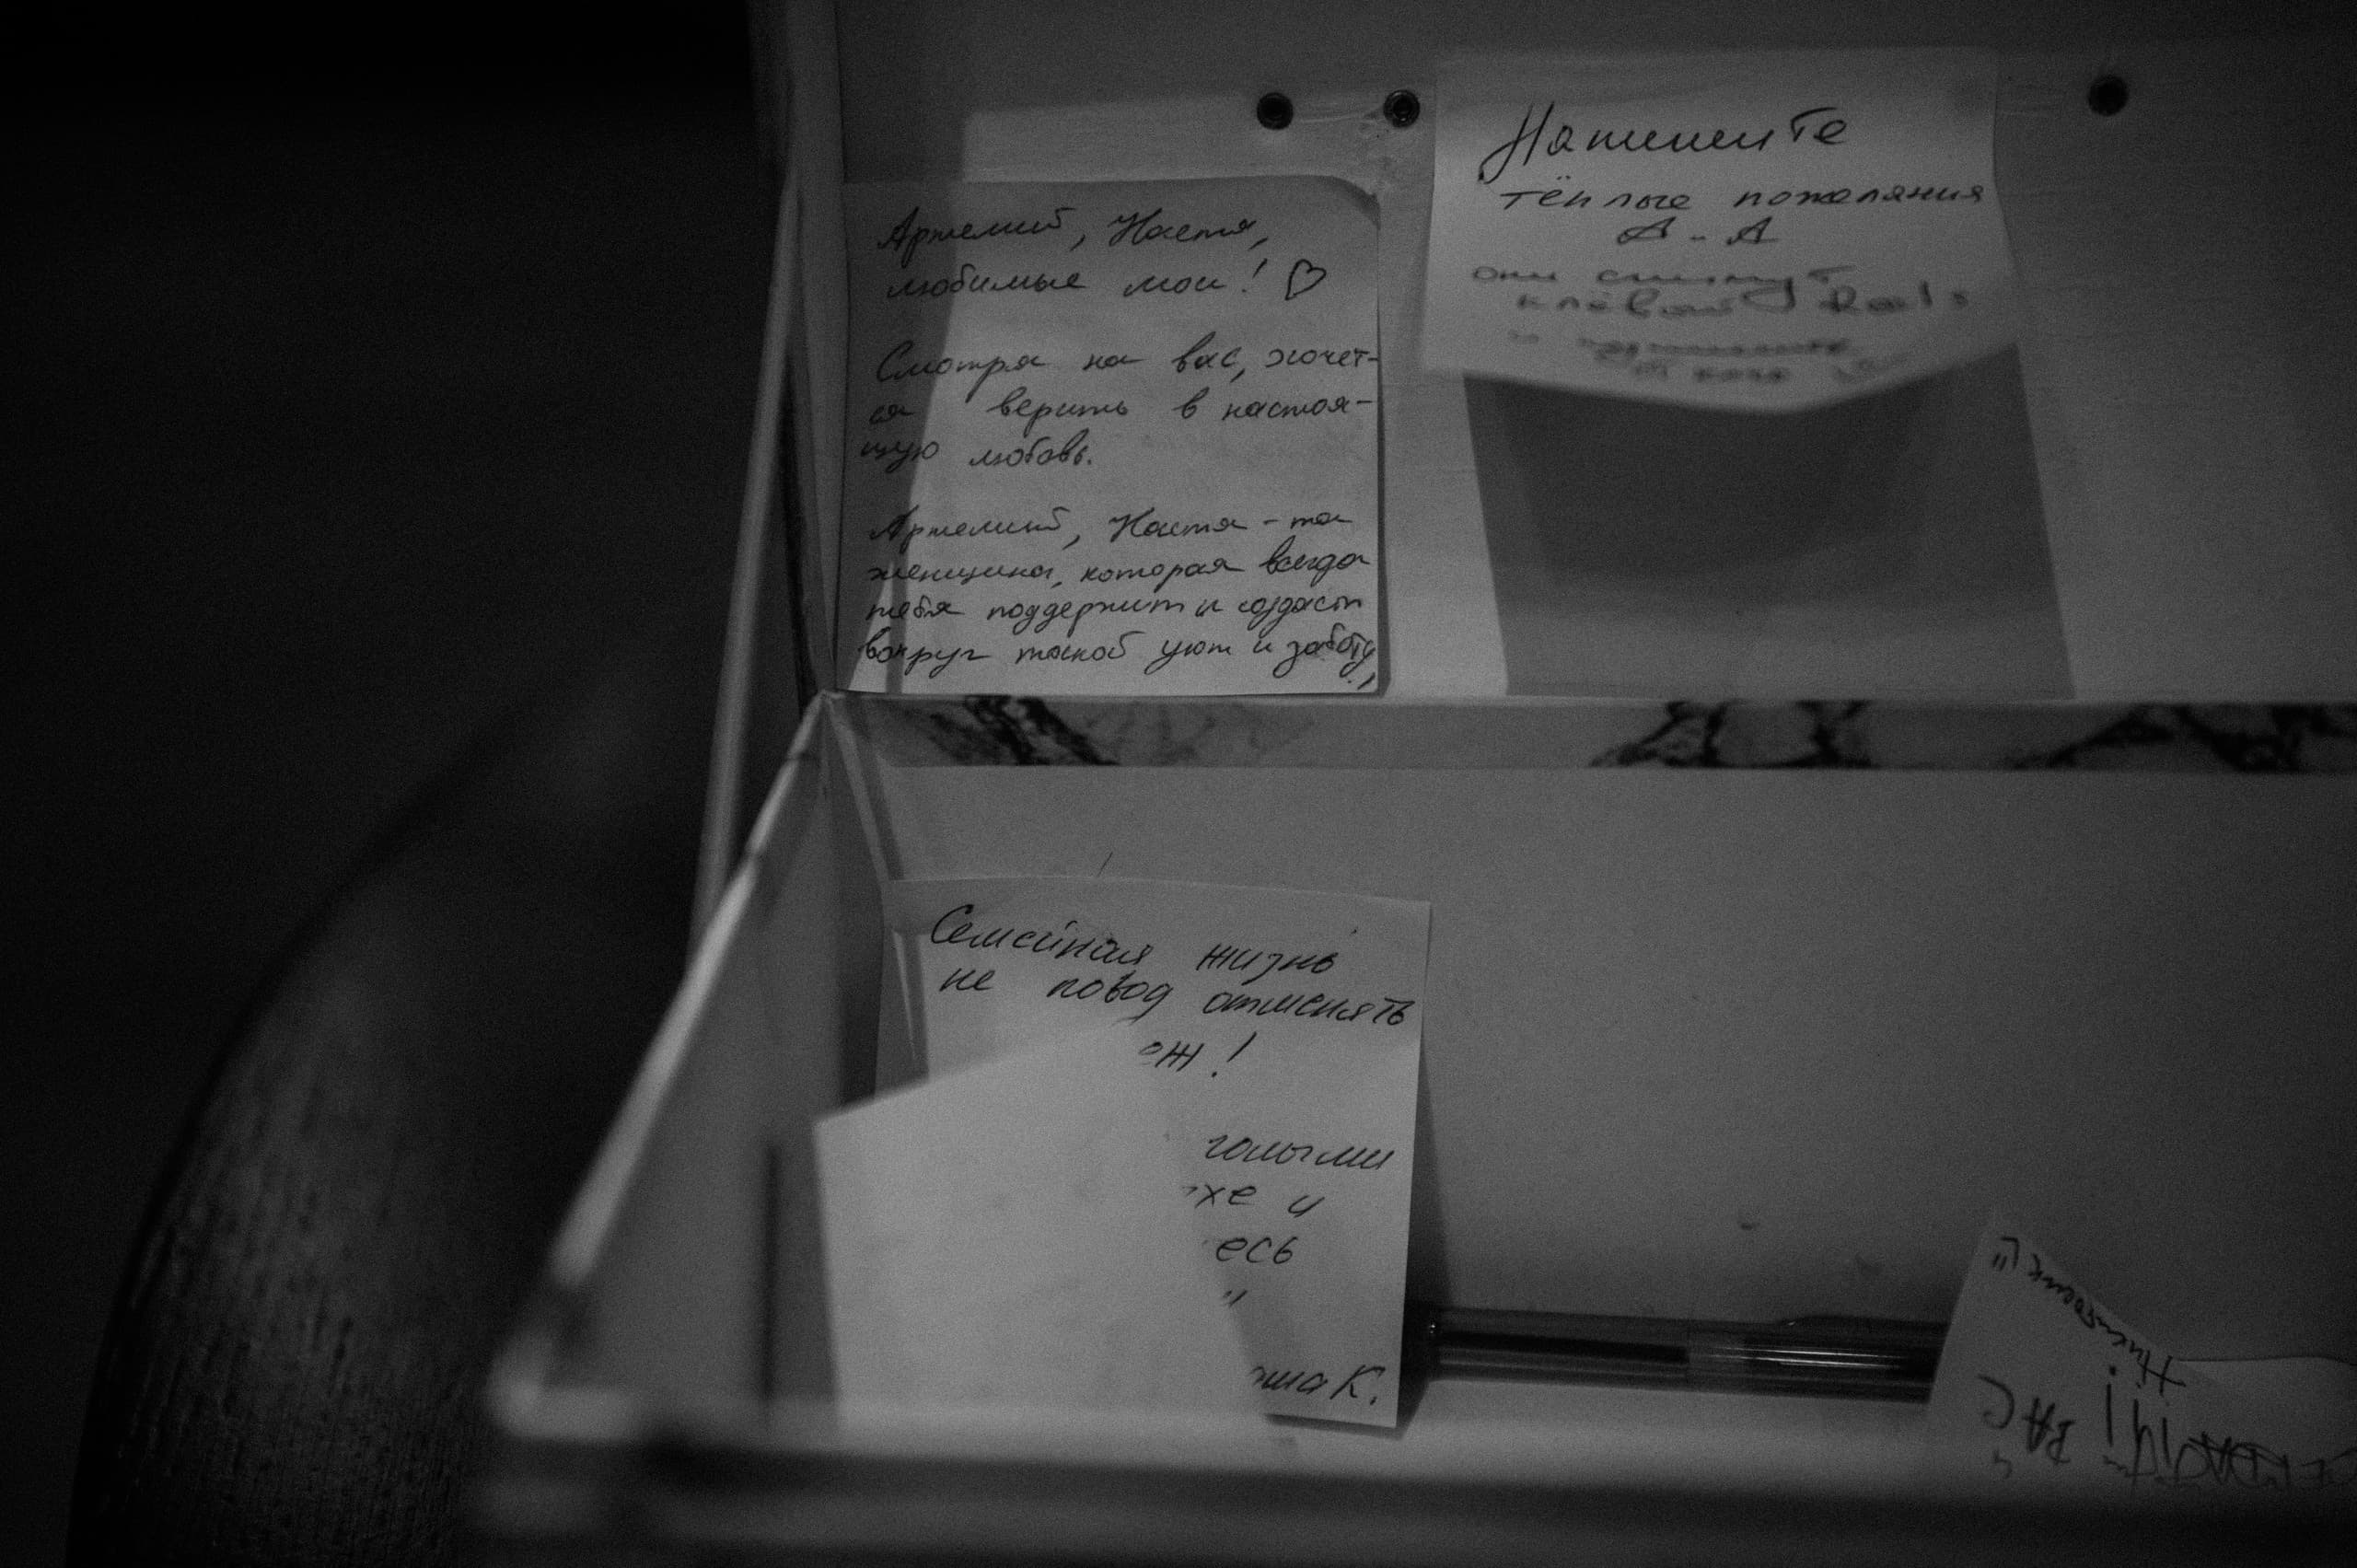 Артемий, Настя,
любимые мои! ♡
Смотря на вас, хочет-
ся верить в настоя-
щую любовь.
Артемий, Настя - та
женщина, которая всегда
тебя поддержит и создаст
вокруг такой уют и заботу,
Напишите
тёплые пожелания
А - А
они снимут
клёвый Reels
Семейная жизнь
не повод отменять
ож!
голыми
хе и
есь
"
ша К.
ВАС